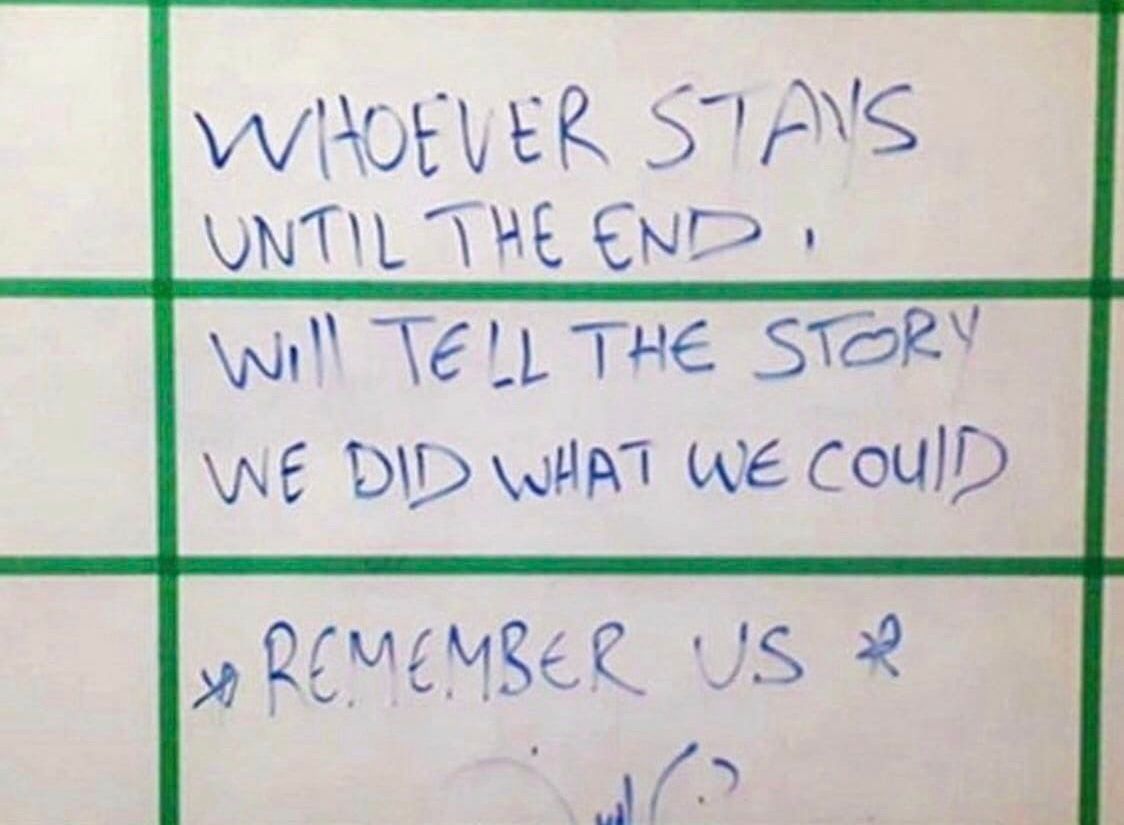 WHOEVER STAYS
UNTIL THE END.
Will TELL THE STORY
WE DID WHAT WE COUlD
*REMEMBER US *